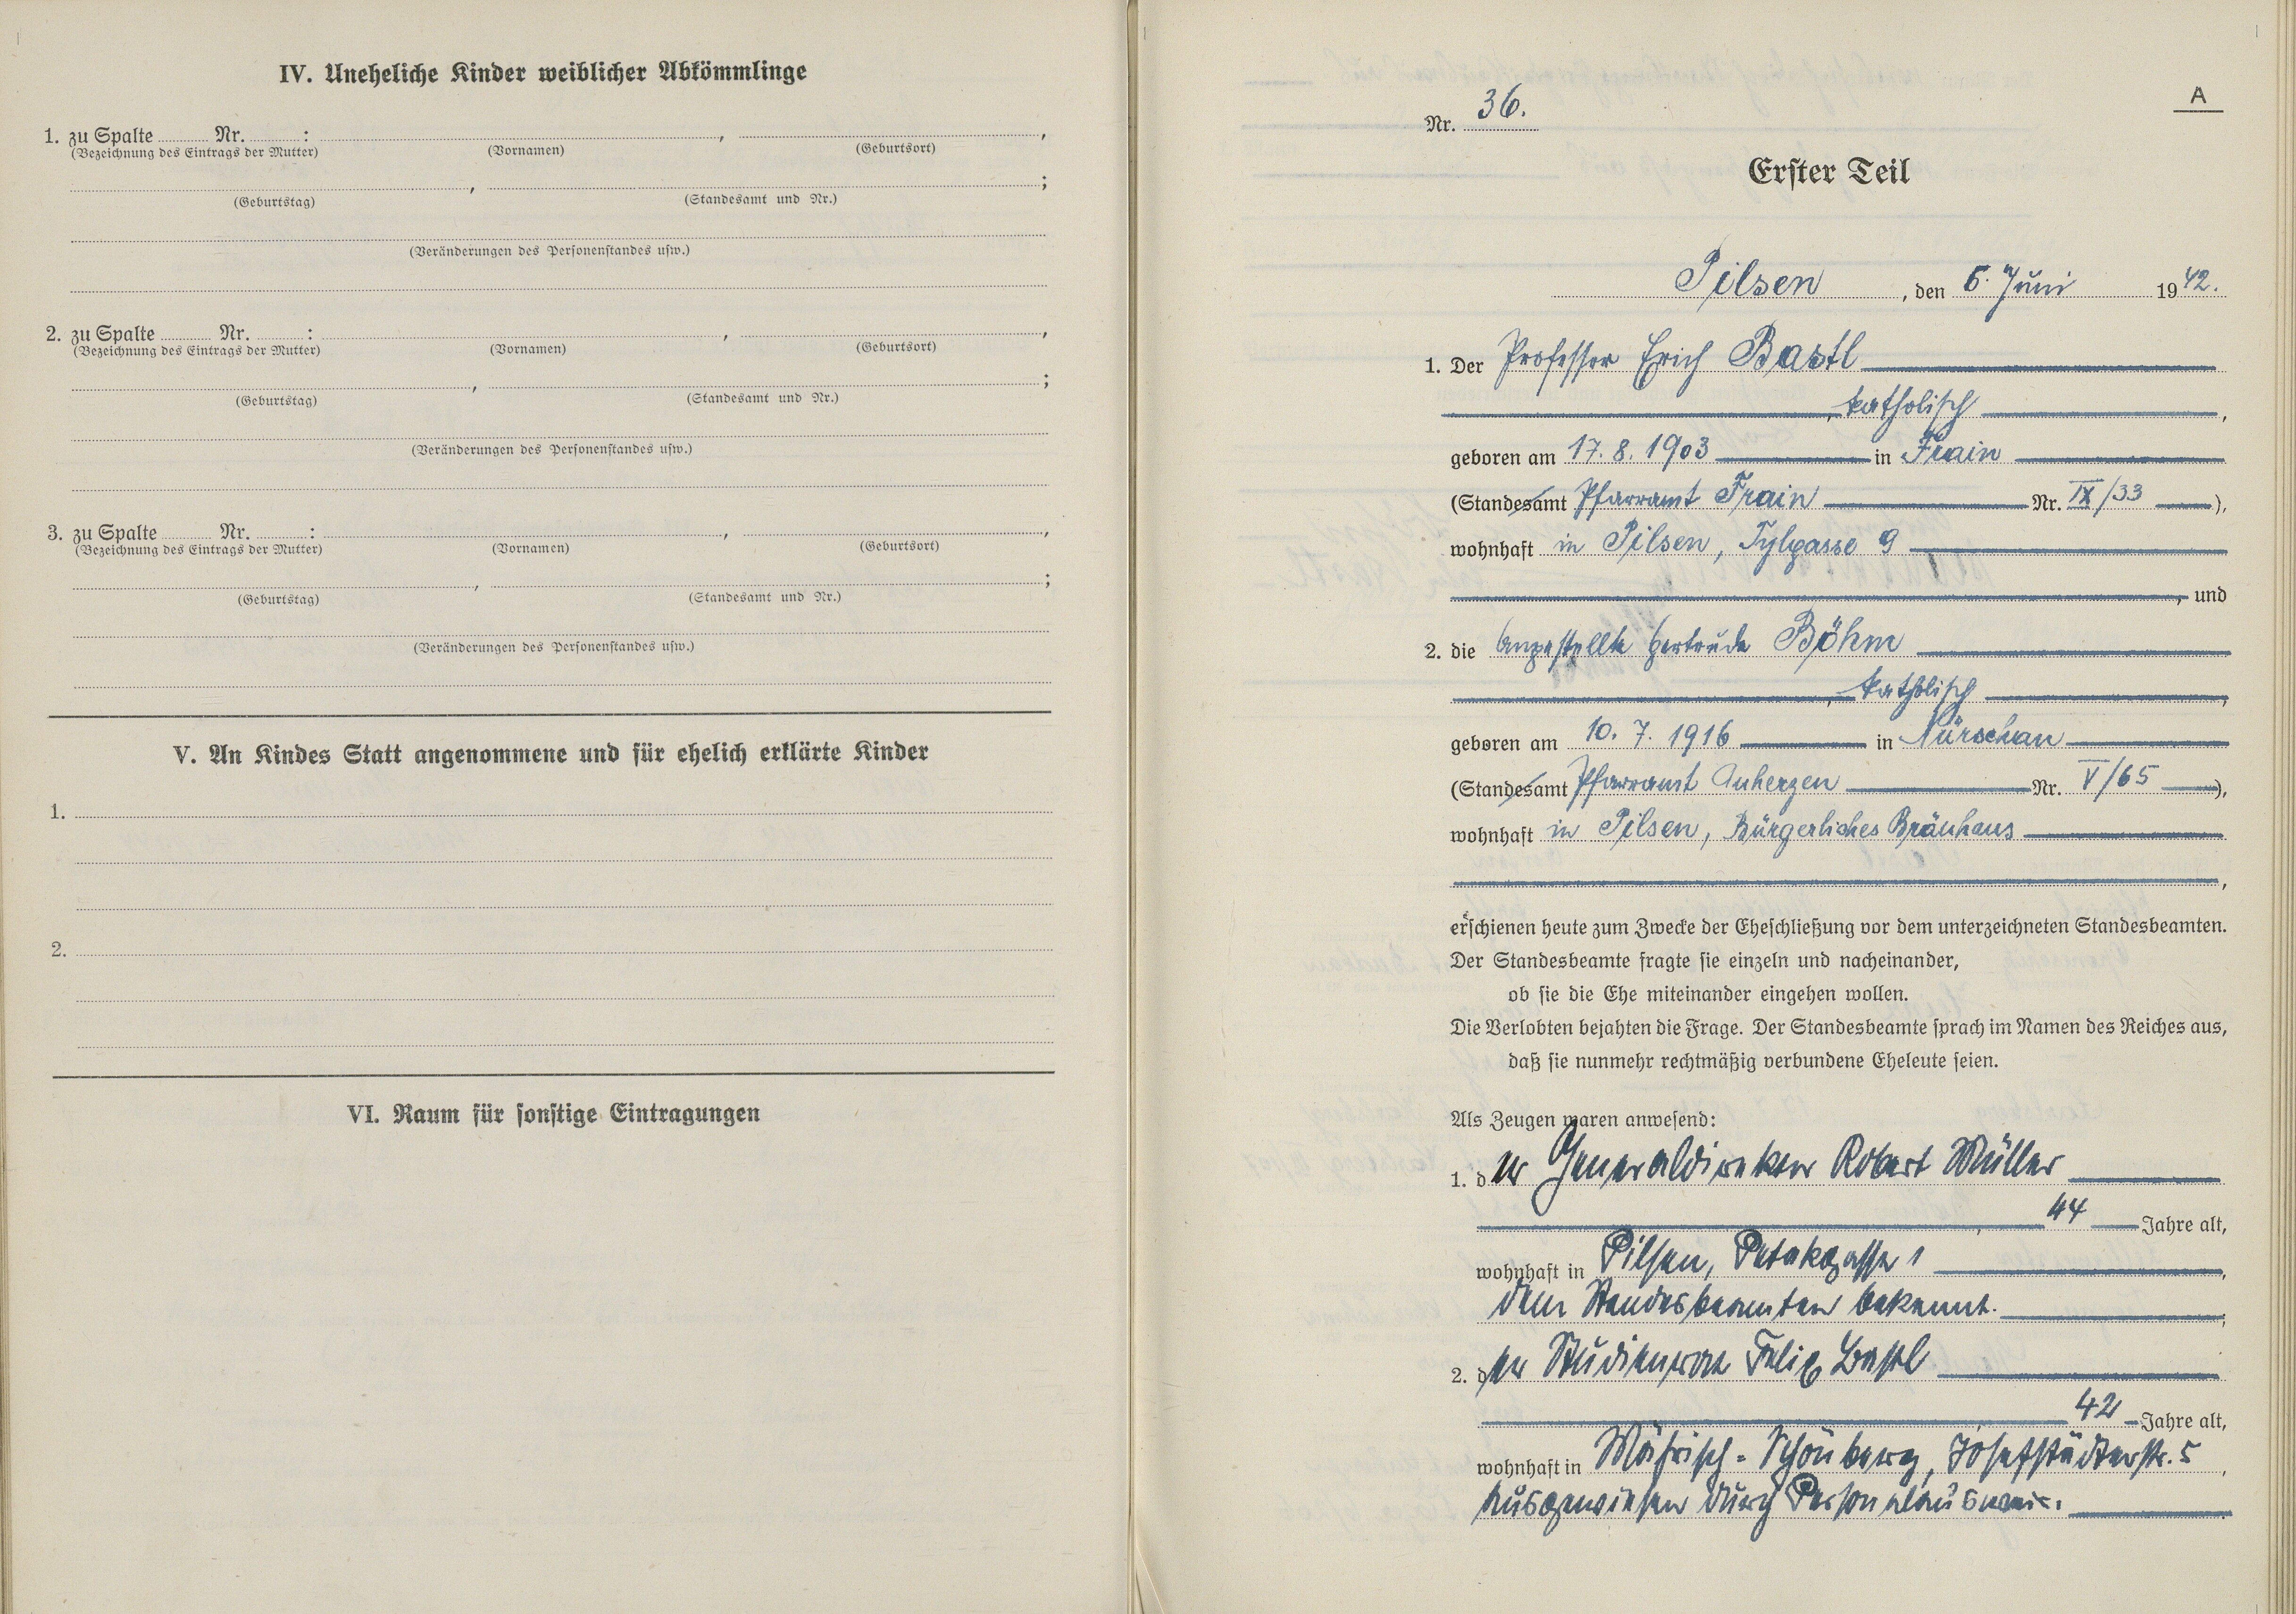 IV. Uneheliche Kinder weiblicher Abkömmlinge
1. zu Spalte ........ Nr. ........ : ........ , ........ ,
(Bezeichnung des Eintrags der Mutter) (Vornamen) (Geburtsort)
........ , ........ ;
(Geburtstag) (Standesamt und Nr.)
(Veränderungen des Personenstandes usw.)
2. zu Spalte ........ Nr. ........ : ........ , ........ ,
(Bezeichnung des Eintrags der Mutter) (Vornamen) (Geburtsort)
........ , ........ ;
(Geburtstag) (Standesamt und Nr.)
(Veränderungen des Personenstandes usw.)
3. zu Spalte ........ Nr. ........ : ........ , ........ ,
(Bezeichnung des Eintrags der Mutter) (Vornamen) (Geburtsort)
........ , ........ ;
(Geburtstag) (Standesamt und Nr.)
(Veränderungen des Personenstandes usw.)
V. An Kindes Statt angenommene und für ehelich erklärte Kinder
1.
2.
VI. Raum für sonstige Eintragungen
A
Nr. 36.
Erster Teil
Pilsen, den 6. Juni 1942.
1. Der Professor Erich Bastl
, katholisch ,
geboren am 17. 8. 1903 in Frain
(Standesamt Pfarramt Frain Nr. IX/33 ),
wohnhaft in Pilsen, Tylgasse 9
, und
2. die Angestellte Gertrude Böhm
, katholisch ,
geboren am 10. 7. 1916 in Nürschan
(Standesamt Pfarramt Auherzen Nr. V/65 ),
wohnhaft in Pilsen, Bürgerliches Bräuhaus
,
erschienen heute zum Zwecke der Eheschließung vor dem unterzeichneten Standesbeamten.
Der Standesbeamte fragte sie einzeln und nacheinander,
ob sie die Ehe miteinander eingehen wollen.
Die Verlobten bejahten die Frage. Der Standesbeamte sprach im Namen des Reiches aus,
daß sie nunmehr rechtmäßig verbundene Eheleute seien.
Als Zeugen waren anwesend:
1. der Generaldirektor Robert Müller
, 44 Jahre alt,
wohnhaft in Pilsen, Petakgasse 1 ,
dem Standesbeamten bekannt. ;
2. der Studienrat Felix Bastl
42 Jahre alt,
wohnhaft in Mährisch-Schönberg, Josefstädterstr. 5 ,
ausgewiesen durch Personalausweis.